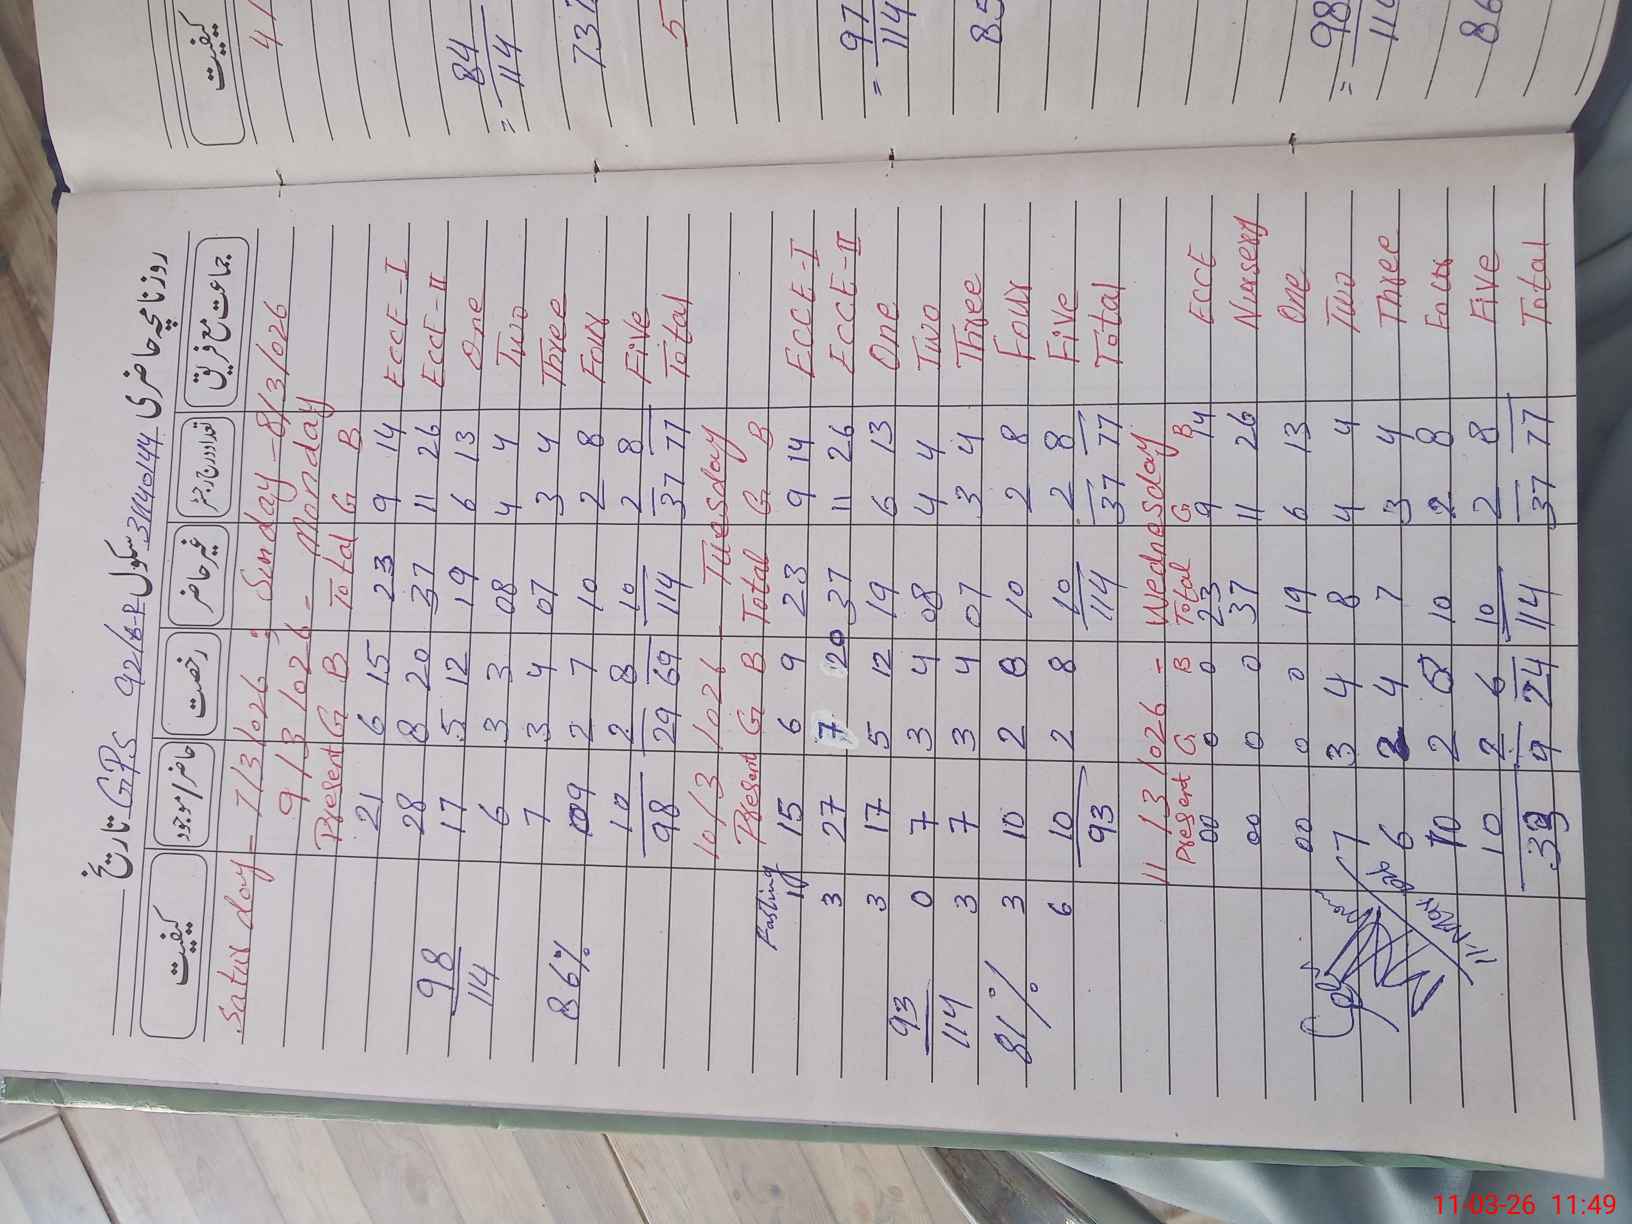 روزنامچہ حاضری
تاریخ GPS 92/8-P سکول 31140144
کیفیت حاضر/موجود رخصت غیر حاضر تعداد درج رجسٹر جماعت مع فریق
Saturday - 7/3/026 : Sunday - 8/3/026
9/3/026 - Monday
Present G B Total G B
21 6 15 23 9 14 EccE-I
28 8 20 37 11 26 EccE-II
98 17 5 12 19 6 13 One
114 6 3 3 08 4 4 Two
7 3 4 07 3 4 Three
86% 09 2 7 10 2 8 Four
10 2 8 10 2 8 Five
98 29 69 114 37 77 Total
10/3/026 - Tuesday
Fasting Present G B Total G B
15 6 9 23 9 14 EccE-I
3 27 7 20 37 11 26 EccE-II
3 17 5 12 19 6 13 One
93 0 7 3 4 08 4 4 Two
114 3 7 3 4 07 3 4 Three
81% 3 10 2 8 10 2 8 Four
6 10 2 8 10 2 8 Five
93 114 37 77 Total
11/3/026 - Wednesday
Present G B Total G B
00 0 0 23 9 14 ECCE
00 0 0 37 11 26 Nursery
00 0 0 19 6 13 One
7 3 4 8 4 4 Two
6 2 4 7 3 4 Three
10 2 8 10 2 8 Four
10 2 6 10 2 8 Five
33 9 24 114 37 77 Total
کیفیت
84
= 114
73%
5
97
= 114
85
98
= 114
86
11-03-26 11:49